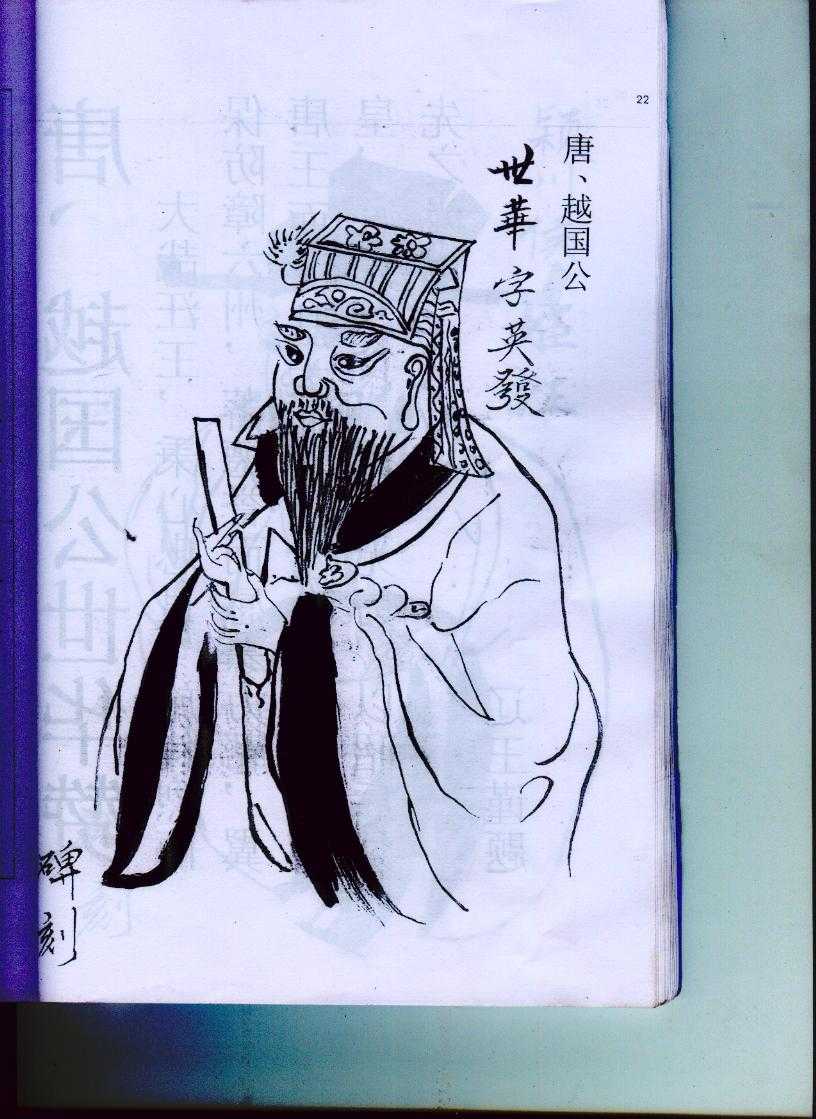 22
唐、越国公
世華字英發
碑刻